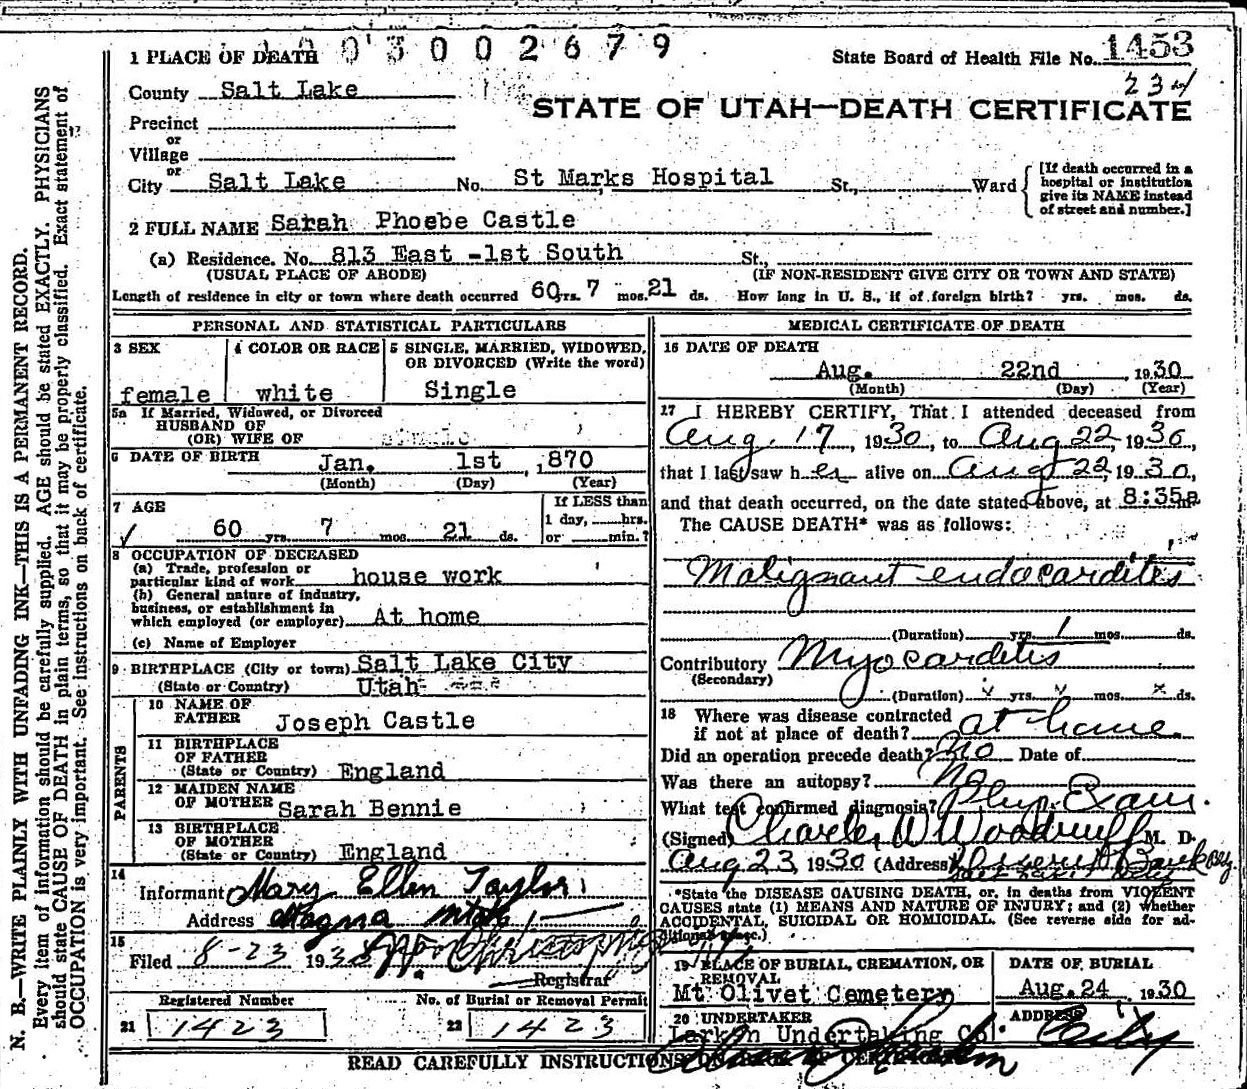 0 0 3 0 0 2 6 7 9
1 PLACE OF DEATH
State Board of Health File No. 1453
234
County Salt Lake
STATE OF UTAH—DEATH CERTIFICATE
Precinct
or
Village
or
City Salt Lake No. St Marks Hospital St., Ward
[If death occurred in a hospital or institution give its NAME instead of street and number.]
2 FULL NAME Sarah Phoebe Castle
(a) Residence. No. 813 East -1st South St.,
(USUAL PLACE OF ABODE) (IF NON-RESIDENT GIVE CITY OR TOWN AND STATE)
Length of residence in city or town where death occurred 60 yrs. 7 mos. 21 ds. How long in U. S., if of foreign birth? yrs. mos. ds.
PERSONAL AND STATISTICAL PARTICULARS
3 SEX
female
4 COLOR OR RACE
white
5 SINGLE, MARRIED, WIDOWED, OR DIVORCED (Write the word)
Single
5a If Married, Widowed, or Divorced
HUSBAND OF
(OR) WIFE OF
6 DATE OF BIRTH Jan. 1st, 1870
(Month) (Day) (Year)
7 AGE
60 yrs. 7 mos. 21 ds.
If LESS than
1 day, hrs.
or min.?
8 OCCUPATION OF DECEASED
(a) Trade, profession or
particular kind of work house work
(b) General nature of industry,
business, or establishment in
which employed (or employer) At home
(c) Name of Employer
9 BIRTHPLACE (City or town) Salt Lake City
(State or Country) Utah
PARENTS
10 NAME OF
FATHER Joseph Castle
11 BIRTHPLACE
OF FATHER
(State or Country) England
12 MAIDEN NAME
OF MOTHER Sarah Bennie
13 BIRTHPLACE
OF MOTHER
(State or Country) England
14
Informant Mary Ellen Taylor
Address Magna Utah
15
Filed 8-23 1930
Registrar
Registered Number No. of Burial or Removal Permit
21 1423 22 1423
MEDICAL CERTIFICATE OF DEATH
16 DATE OF DEATH
Aug. 22nd, 1930
(Month) (Day) (Year)
17 I HEREBY CERTIFY, That I attended deceased from
Aug. 17, 1930, to Aug 22, 1930
that I last saw her alive on Aug 22, 1930,
and that death occurred, on the date stated above, at 8:35a m.
The CAUSE DEATH* was as follows:
Malignant endocarditis
(Duration) yrs. 1 mos. ds.
Contributory Myocarditis
(Secondary)
(Duration) yrs. mos. ds.
18 Where was disease contracted
if not at place of death? at home.
Did an operation precede death? No Date of
Was there an autopsy? No
What test confirmed diagnosis? Phys. Exam.
(Signed) Charles W Woodruff M. D.
Aug 23 1930 (Address) Deseret Bank Bldg
*State the DISEASE CAUSING DEATH, or, in deaths from VIOLENT
CAUSES state (1) MEANS AND NATURE OF INJURY; and (2) whether
ACCIDENTAL, SUICIDAL OR HOMICIDAL. (See reverse side for ad-
ditional space.)
19 PLACE OF BURIAL, CREMATION, OR
REMOVAL
Mt Olivet Cemetery
DATE OF BURIAL
Aug. 24, 1930
20 UNDERTAKER
Larkin Undertaking Co.
ADDRESS
City
READ CAREFULLY INSTRUCTIONS ON BACK OF CERTIFICATE
N. B.—WRITE PLAINLY WITH UNFADING INK—THIS IS A PERMANENT RECORD.
Every item of information should be carefully supplied. AGE should be stated EXACTLY. PHYSICIANS
should state CAUSE OF DEATH in plain terms, so that it may be properly classified. Exact statement of
OCCUPATION is very important. See instructions on back of certificate.